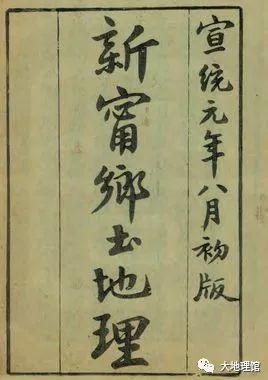 宣統元年八月初版
新甯鄉土地理
大地理馆